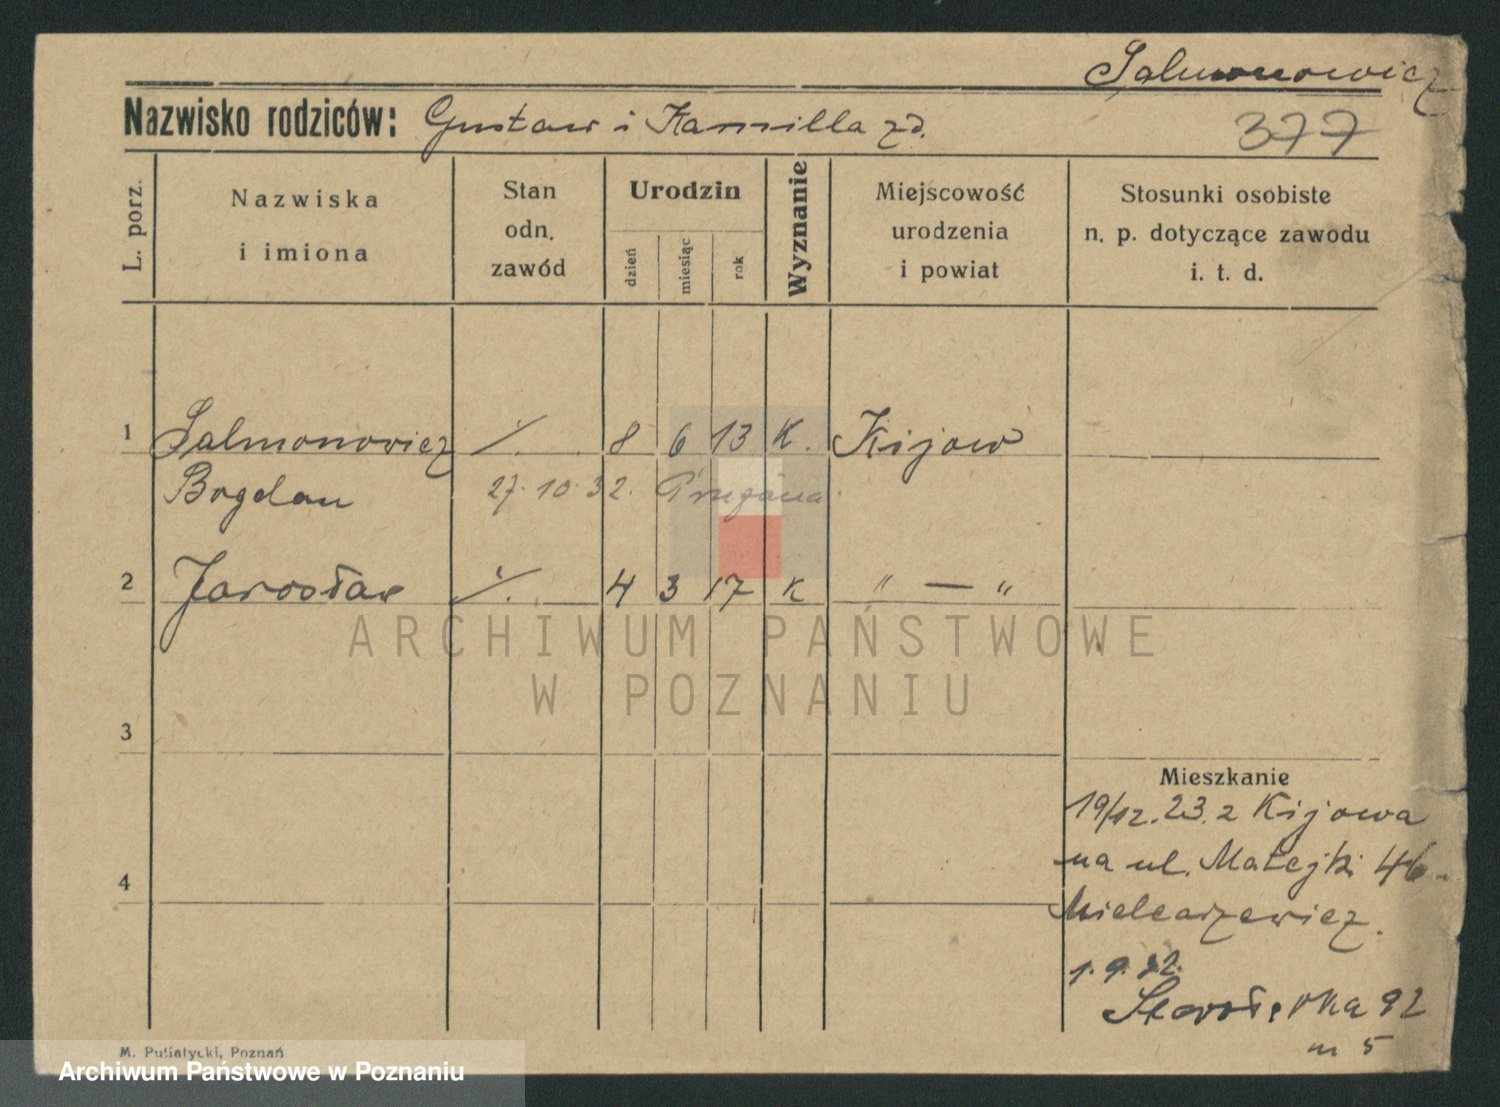 Salmonowicz
Nazwisko rodziców: Gustaw i Kamilla zd.
377
L. porz.
Nazwiska
i imiona
Stan
odn.
zawód
Urodzin
dzień
miesiąc
rok
Wyznanie
Miejscowość
urodzenia
i powiat
Stosunki osobiste
n. p. dotyczące zawodu
i. t. d.
1 Salmonowicz ./. 8 6 13 K. Kijow
Bogdan 27.10.32.
2 Jarosław ./. 4 3 17 K " — "
ARCHIWUM PAŃSTWOWE
W POZNANIU
3
Mieszkanie
19/12.23. z Kijowa
na ul. Matejki 46
4
Mielcarzewicz.
1.9.32.
Starołęcka 92
m 5
M. Putiatycki, Poznań
Archiwum Państwowe w Poznaniu